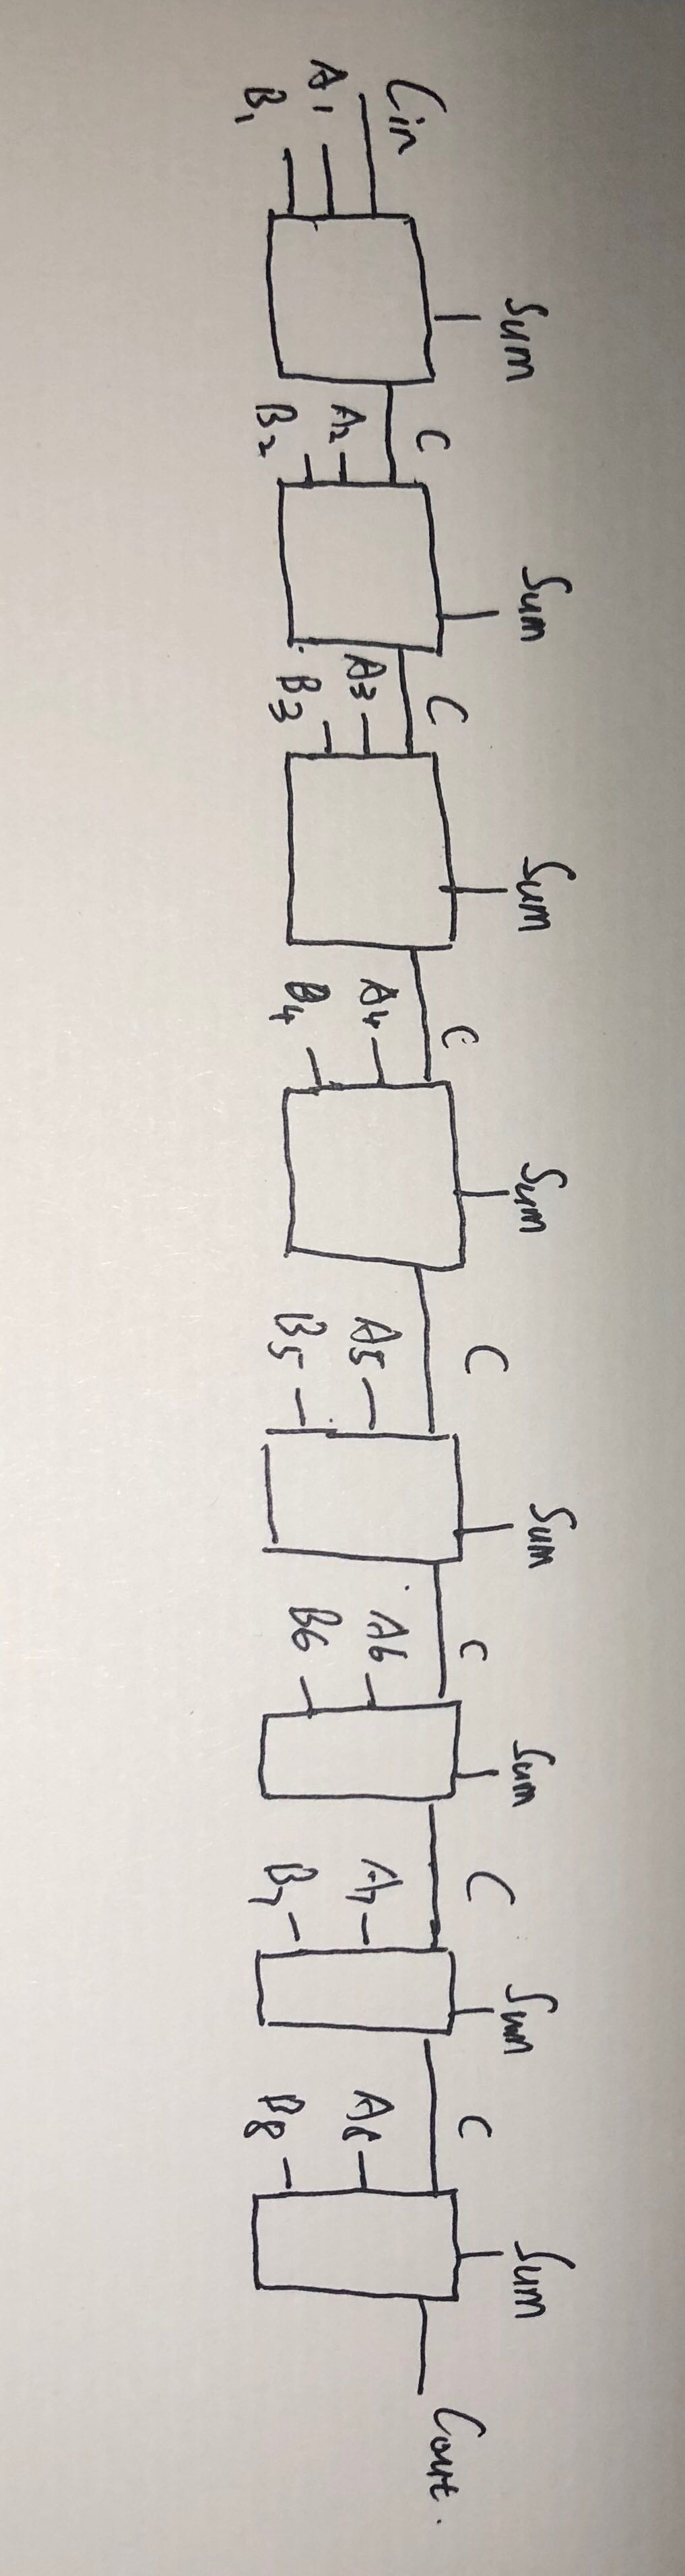 Cin
A1
B1
Sum
C
A2
B2
Sum
C
A3
B3
Sum
C
A4
B4
Sum
C
A5
B5
Sum
C
A6
B6
Sum
C
A7
B7
Sum
C
A8
B8
Sum
Cout.